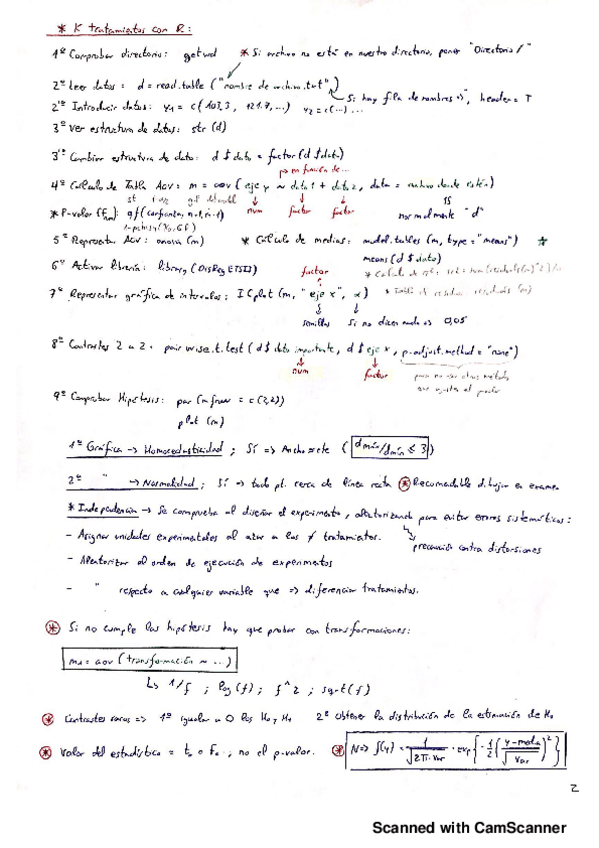 * K tratamientos con R:
1º Comprobar directorio: getwd * Si archivo no está en nuestro directorio, poner "Directorio/"
2º Leer datos: d = read.table ("nombre de archivo.txt")
Si hay fila de nombres => , header = T
2'º Introducir datos: y1 = c(103,3, 121.7,...) y2 = c(...)...
3º Ver estructura de datos: str (d)
3'º Cambiar estructura de dato: d $ dato = factor (d $ dato)
en función de...
4º Cálculo de Tabla AOV: m = aov (eje y ~ dato 1 + dato 2, data = archivo donde están)
num factor factor normalmente "d"
* P-valor
5º Representar AOV: anova (m) * Cálculo de medias: model.tables (m, type = "means") *
means (d $ dato)
6º Activar librería: library (DisRegETSII)
factor
7º Representar gráfica de intervalos: ICplot (m, "eje x", α)
semillas Si no dicen nada => 0,05
8º Contrastes 2 a 2: pairwise.t.test (d $ dato importante, d $ eje x, p.adjust.method = "none")
num factor para no usar otros métodos
9º Comprobar Hipótesis: par (mfrow = c(2,2))
plot (m)
1ª Gráfica -> Homocedasticidad ; Sí => Ancho = cte ( dmáx/dmín ≤ 3 )
2ª " -> Normalidad ; Sí -> todo pt. cerca de línea recta * Recomendable dibujar en examen
* Independencia -> Se comprueba al diseñar el experimento, aleatorizando para evitar errores sistemáticos:
- Asignar unidades experimentales al azar a los ≠ tratamientos.
precaución contra distorsiones
- Aleatorizar el orden de ejecución de experimentos
- " respecto a cualquier variable que => diferenciar tratamientos.
* Si no cumple las hipótesis hay que probar con transformaciones:
m2 = aov (transformación ~ ...)
↳ 1/f ; log (f) ; f^2 ; sqrt (f)
* Contrastes raros => 1º igualar a 0 las H0 y H1 2º Obtener la distribución de la estimación de H0
* Valor del estadístico = t0 o F0 ; no el p-valor. * N => f(y) = 1/√(2π·var) · exp{-1/2 ((y-media)/√var)²}
2
Scanned with CamScanner